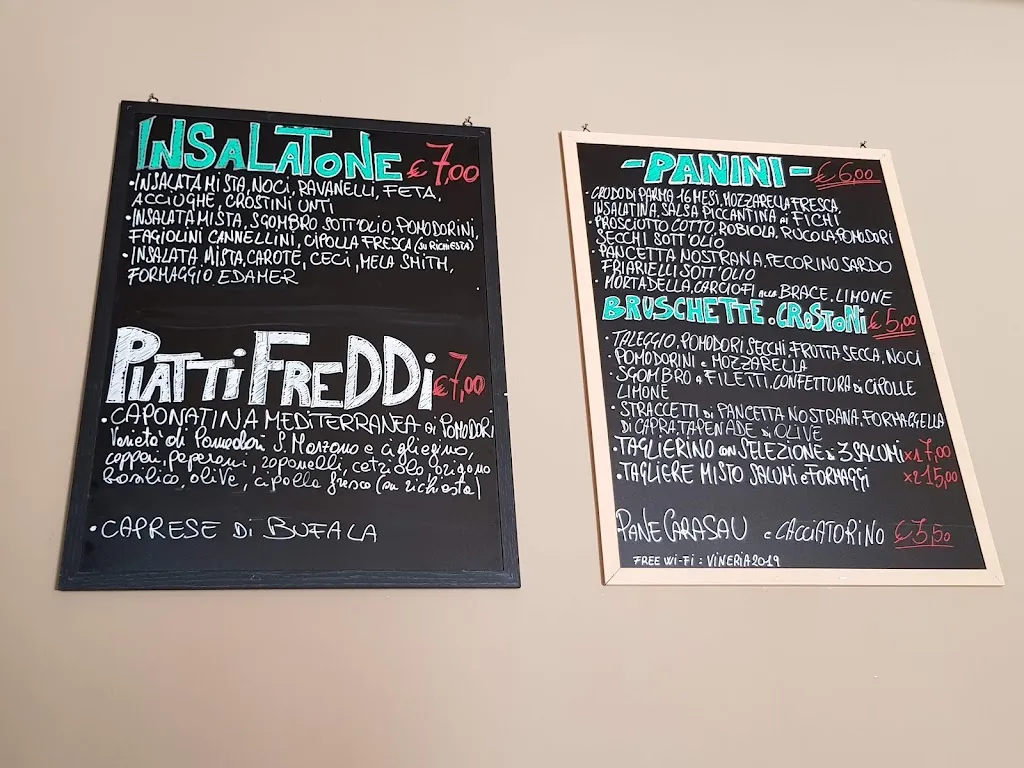 INSALATONE € 7,00
• INSALATA MISTA, NOCI, RAVANELLI, FETA,
ACCIUGHE, CROSTINI UNTI
• INSALATA MISTA, SGOMBRO SOTT'OLIO, POMODORINI,
FAGIOLINI CANNELLINI, CIPOLLA FRESCA (SU RICHIESTA)
• INSALATA MISTA, CAROTE, CECI, MELA SMITH,
FORMAGGIO EDAMER
PIATTI FREDDI € 7,00
• CAPONATINA MEDITERRANEA di POMODORI
Varietà di Pomodori S. Marzano e ciliegino,
capperi, peperoni, cetriolo origano
basilico, olive, cipolla fresca (su richiesta)
• CAPRESE DI BUFALA
- PANINI - € 6,00
• CRUDO DI PARMA 16 MESI, MOZZARELLA FRESCA,
INSALATINA, SALSA PICCANTINA ai FICHI
• PROSCIUTTO COTTO, ROBIOLA, RUCOLA, POMODORI
SECCHI SOTT'OLIO
• PANCETTA NOSTRANA, PECORINO SARDO
FRIARIELLI SOTT'OLIO
• MORTADELLA, CARCIOFI alla BRACE, LIMONE
BRUSCHETTE e CROSTONI € 5,00
• TALEGGIO, POMODORI SECCHI, FRUTTA SECCA, NOCI
• POMODORINI e MOZZARELLA
• SGOMBRO a FILETTI, CONFETTURA di CIPOLLE
LIMONE
• STRACCETTI di PANCETTA NOSTRANA, FORMAGGELLA
DI CAPRA, TAPENADE di OLIVE
• TAGLIERINO con SELEZIONE di 3 SALUMI x1 7,00
• TAGLIERE MISTO SALUMI e FORMAGGI x2 15,00
PANE CARASAU e CACCIATORINO € 3,50
FREE WI-FI : VINERIA2019